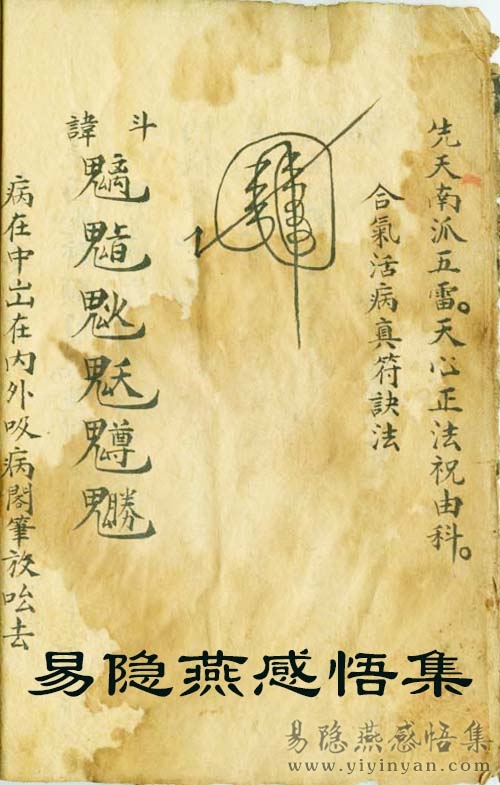 先天南派五雷。天心正法祝由科。
合氣活病真符訣法
斗諱
病在中岀在内外吸病閣筆放吆去
易隐燕感悟集
易隐燕感悟集
www.yiyinyan.com